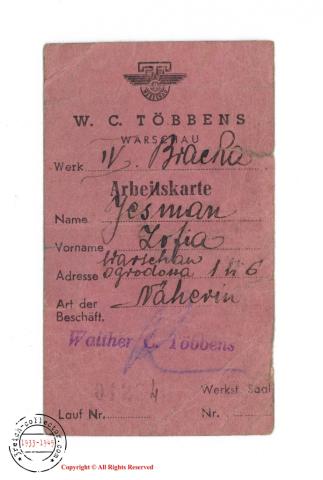 W. C. TÖBBENS
WARSCHAU
Werk IV. Bracka
Arbeitskarte
Name Jesman
Vorname Zofia
Warschau
Adresse Ogrodowa 1
Art der Näherin
Beschäft.
Walther C. Többens
Werkst. Saal
Lauf Nr. Nr.
reich-collector.com
1933-1945
Copyright © All Rights Reserved